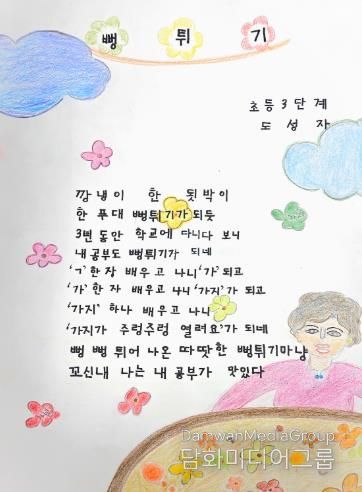 뻥 튀 기
초등 3 단계
도 성 자
깡냉이 한 됫박이
한 푸대 뻥튀기가 되듯
3년 동안 학교에 다니다 보니
내 공부도 뻥튀기가 되네
'ㄱ' 한 자 배우고 나니 '가' 되고
'가' 한 자 배우고 나니 '가지' 가 되고
'가지' 하나 배우고 나니
'가지가 주렁주렁 열려요' 가 되네
뻥 뻥 튀어 나온 따땃한 뻥튀기마냥
꼬신내 나는 내 공부가 맛있다
DamwhaMediaGroup
담화미디어그룹